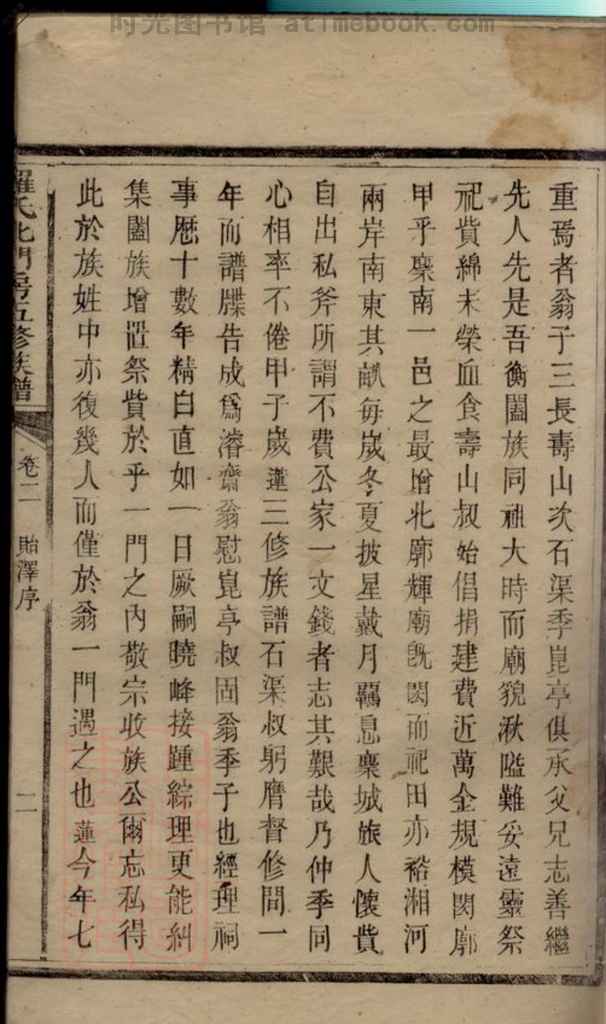 时光图书馆 atimebook.com
重焉者翁子三長壽山次石渠季崑亭俱承父兄志善繼
先人先是吾衡闔族同祖大時而廟貌湫隘難妥遠靈祭
祀貲綿未榮血食壽山叔始倡捐建費近萬金規模閎廓
甲乎稾南一邑之最增北廓輝廟既閎而祀田亦裕湘河
兩岸南東其畝每歲冬夏披星戴月羈息稾城旅人懷貲
自出私斧所謂不費公家一文錢者志其艱哉乃仲季同
心相率不倦甲子歲蓮三修族譜石渠叔躬膺督修間一
年而譜牒告成爲濬齋翁慰崑亭叔固翁季子也經理祠
事歷十數年精白直如一日厥嗣曉峰接踵綜理更能糾
集闔族增置祭貲於乎一門之內敬宗收族公爾忘私得
此於族姓中亦復幾人而僅於翁一門遇之也蓮今年七
羅氏北門房五修族譜
卷二 貽澤序
二